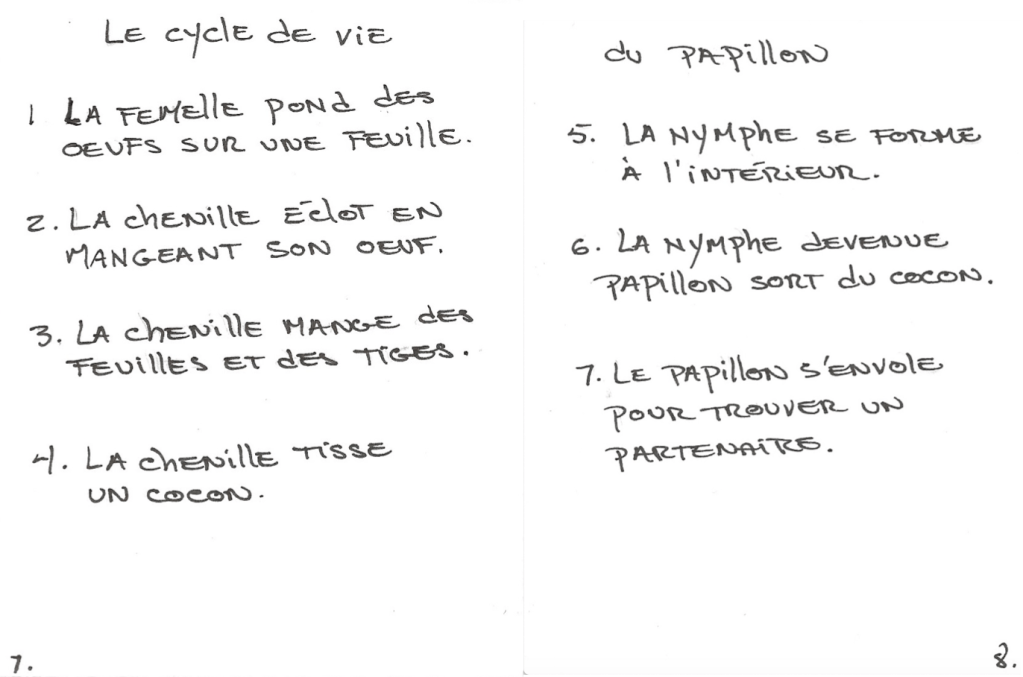 Le cycle de vie
1 La femelle pond des
oeufs sur une feuille.
2. La chenille éclot en
mangeant son oeuf.
3. La chenille mange des
feuilles et des tiges.
4. La chenille tisse
un cocon.
7.
du papillon
5. La nymphe se forme
à l'intérieur.
6. La nymphe devenue
papillon sort du cocon.
7. Le papillon s'envole
pour trouver un
partenaire.
8.